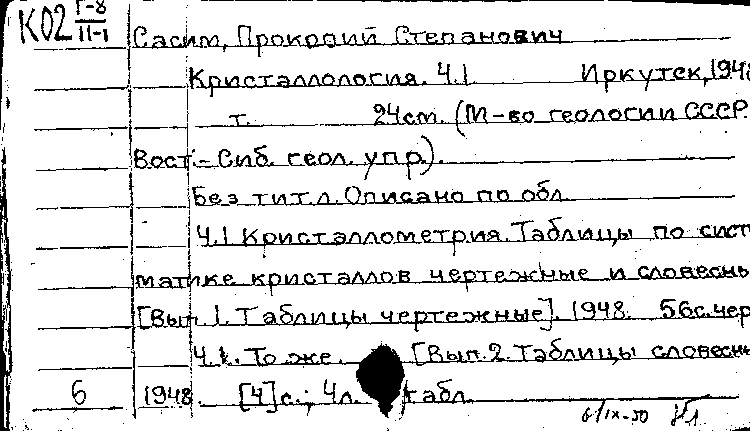 К02 Г-8
II-1
Сасим, Прокопий Степанович
Кристаллология. Ч.1. Иркутск, 1948
т. 24см. (М-во геологии СССР.
Вост.-Сиб. геол. упр.).
Без тит.л. Описано по обл.
Ч.1 Кристаллометрия. Таблицы по сист
матике кристаллов чертежные и словесны
[Вып. 1. Таблицы чертежные]. 1948. 56с.чер
Ч.1. То же. [Вып.2. Таблицы словесны
6 1948. [4]с.; 4л. табл.